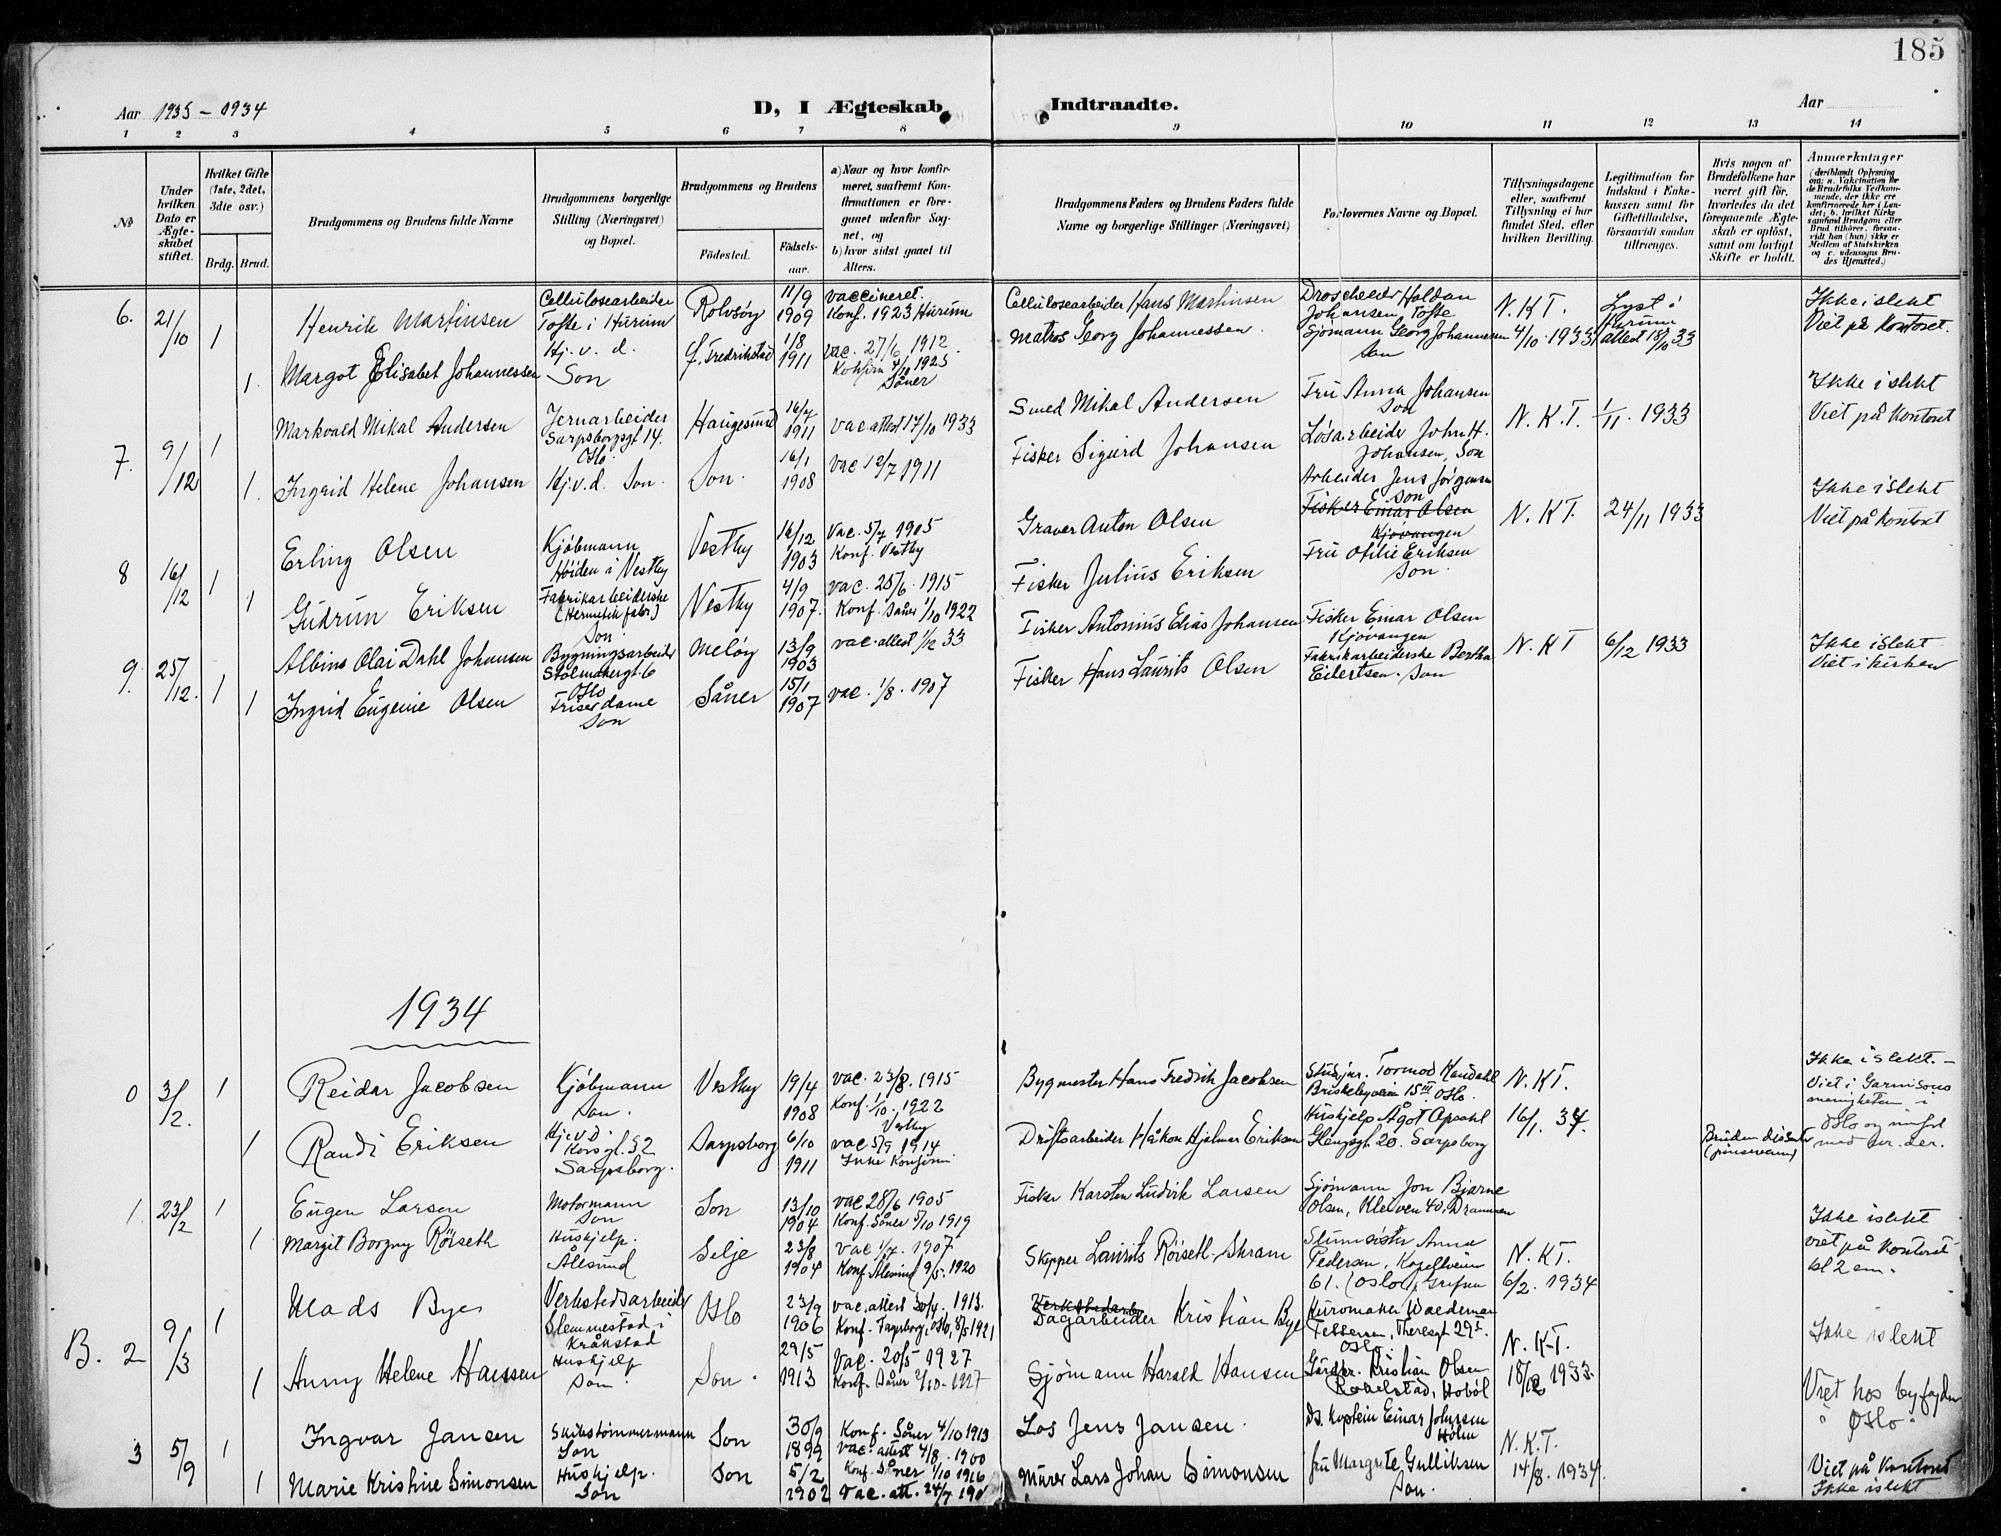 185
Aar 1933 - 1934
D, I Ægteskab Indtraadte.
Aar
1 2 3 4 5 6 7 8 9 10 11 12 13 14
No
Under hvilken Dato er Ægteskabet stiftet.
Hvilket Gifte (1ste, 2det, 3die osv.)
Brdg. Brud.
Brudgommens og Brudens fulde Navne
Brudgommens borgerlige Stilling (Næringsvei) og Bopæl.
Brudgommens og Brudens
Födested. Födselsaar.
a) Naar og hvor konfirmeret, saafremt Konfirmationen er foregaaet udenfor Sognet, og
b) hvor sidst gaaet til Alters.
Brudgommens Faders og Brudens Faders fulde Navne og borgerlige Stillinger (Næringsvei)
Forlovernes Navne og Bopæl.
Tillysningsdagene eller, saafremt Tillysning ei har fundet Sted, efter hvilken Bevilling.
Legitimation for Indskud i Enkekassen samt for Giftetilladelse, forsaavidt saadan tiltrænges.
Hvis nogen af Brudefolkene har været gift før, hvorledes da det foregaaende Ægteskab er oplöst, samt om lovligt Skifte er holdt.
Anmerkninger (deriblandt Oplysning om: a. Vakcination for de Brudefolks Vedkommende, der ikke ere konfirmerede her i Landet; b. hvilket Kirkesamfund Brudgom eller Brud tilhører, forsaavidt han (hun) ikke er Medlem af Statskirken og c. udensogns Brudes Hjemsted.)
6. 21/10 1 Henrik Martinsen
Cellulosearbeider Tofte i Hurum
Rolvsöy 11/9 1909
vaccineret. Konf. 1923 Hurum
Cellulosearbeider Hans Martinsen
Droscheeier Haldan Johansen, Tofte
N.K.T. 4/10 1933
Lyst i Hurum attest 18/10 33
Ikke i slekt Viet på Kontoret.
1. Margot Elisabet Johannessen
Hj.v.d. Son
f. Fredrikstad 1/8 1911
vac. 27/6 1912. Konfirm 4/10 1925 Såner
Matros Georg Johannessen.
Sjömann Georg Johannessen Son
7. 9/12 1 Markvald Mikal Andersen
Jernarbeider Sarpsborggt. 14. Oslo.
Haugesund 16/7 1911
vac attest 17/10 1933
Smed Mikal Andersen
Fru Anna Johansen Son
N.K.T. 1/11. 1933
Ikke i slekt Viet på Kontoret
1. Ingrid Helene Johansen
Hj.v.d. Son.
Son. 16/1 1908
vac 12/7 1911
Fisker Sigurd Johansen
Løsarbeider John H. Johansen, Son
8 16/12 1 Erling Olsen
Kjöbmann Höiden i Vestby
Vestby 16/12 1903
Vac. 5/7 1905 Konf. Vestby
Graver Anton Olsen
Arbeider Jens Jørgensen Son
Fisker Einar Olsen Kjøvangen
N.K.T. 24/11 1933
Ikke i slekt Viet på Kontoret
1 Gudrun Eriksen
Fabrikarbeiderske (Hermetikfabr.) Son.
Vestby 4/9 1907.
vac. 25/6. 1915 Konf. Såner 1/10 1922
Fisker Julius Eriksen
Fru Otilie Eriksen Son.
9. 25/12. 1 Albins Olai Dahl Johansen
Bygningsarbeider Stolmakergt. 6 Oslo
Melöy 13/9 1903
vac. attest 1/12 33
Fisker Antonius Elias Johansen
Fisker Einar Olsen Kjøvangen
N.K.T 6/12 1933
Ikke i slekt Viet i kirken
1 Ingrid Eugenie Olsen
Friserdame Son
Såner 15/1 1907
vac. 1/8. 1907
Fisker Hans Laurits Olsen
Fabrikarbeiderske Bertha Eilertsen. Son
1934
0 3/2. 1 Reidar Jacobsen
Kjöbmann Son.
Vestby 19/4 1908
vac. 23/8. 1915 Konf. 1/10. 1922 Vestby
Bygmester Hans Fredrik Jacobsen
Tormod Kandahl Briskebyveien 15 III Oslo.
N.K.T. 16/1. 34.
Ikke i slekt. - Viet i Garnisonsmenigheten i Oslo
1 Randi Eriksen
Hj.v.d. Korsgt. 52 Sarpsborg.
Sarpsborg 6/10 1911
vac 5/9 1914 Ikke Konfirm.
Driftsarbeider Håkon Hjalmar Eriksen
Huskjelp Ågot Opsahl Glengsgt. 20. Sarpsborg
Bruden dissenter (pinseven)
1. 23/2 1 Eugen Larsen
Motormann Son
Son 13/10 1904
vac 28/6 1905 Konf. Såner 5/10 1919
Fisker Karsten Ludvik Larsen
Sjömann Jon Bjarne Olsen, Kleiven 40, Drammen
N.K.T. 6/2. 1934
Ikke i slekt viet på Kontoret kl 2 em.
1 Margit Borgny Röiseth
Huskjelp. Ålesund
Selje 23/8 1904
vac 1/7. 1907 Konf. Ålesund 9/5. 1920
Skipper Laurits Röiseth. Skram
Slumsöster Anna Pedersen, Kapellveien 61. (Oslo), Grefsen
B. 2 9/3 1 Mads Bye
Verkstedsarbeider Slemmestad i Kråkstad
Oslo 23/9 1906
vac. attest 30/4. 1913. Konf. Fagerborg, Oslo, 8/5 1921
Verkstedarb. Dagarbeider Kristian Bye
Kuromaker Waldemar Theresgt 29 I. Oslo.
N.K.T. 18/12 1933.
Ikke i slekt
Viet hos byfogden i Oslo.
1 Anny Helene Hanssen
Huskjelp Son.
Son. 29/5 1913
Vac. 20/5 1927 Konf. Såner 2/10. 1927
Sjömann Harald Hansen
Gårdbr. Kristian Olsen Rokelstad, Hobøl
3 5/9 1 Ingvar Jansen
Skibstömmermann Son
Son 30/9 1899
Konf. Såner 4/10 1913 Vac. attest 4/8. 1900
Los Jens Jansen.
Ds. Kaptein Einar Johnsen Holm
N.K.T. 14/8. 1934.
Viet på Kontoret Ikke i slekt
1 Marie Kristine Simonsen
Huskjelp. Son
Son 5/2 1902
Konf. Såner 1/10 1916 Vac. att. 24/7 190
Murer Lars Johan Simonsen
fru Margrete Gulliksen Son.